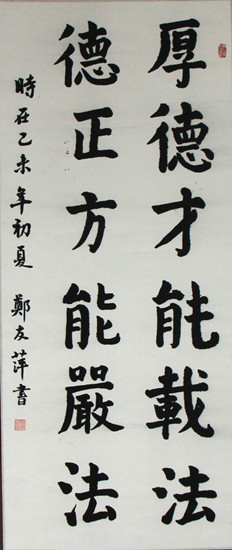 厚德才能載法
德正方能嚴法
時在乙未年初夏 鄭友萍書